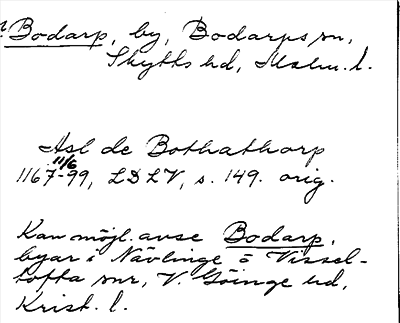 Bodarp, by, Bodarps sn,
Skytts hd, Malm. l.
Asl de Bothathorp
11/6
1167-99, LDLV, s. 149. orig.
Kan möjl. avse Bodarp,
byar i Nävlinge o Vissel-
tofta snr, V. Göinge hd,
Krist. l.